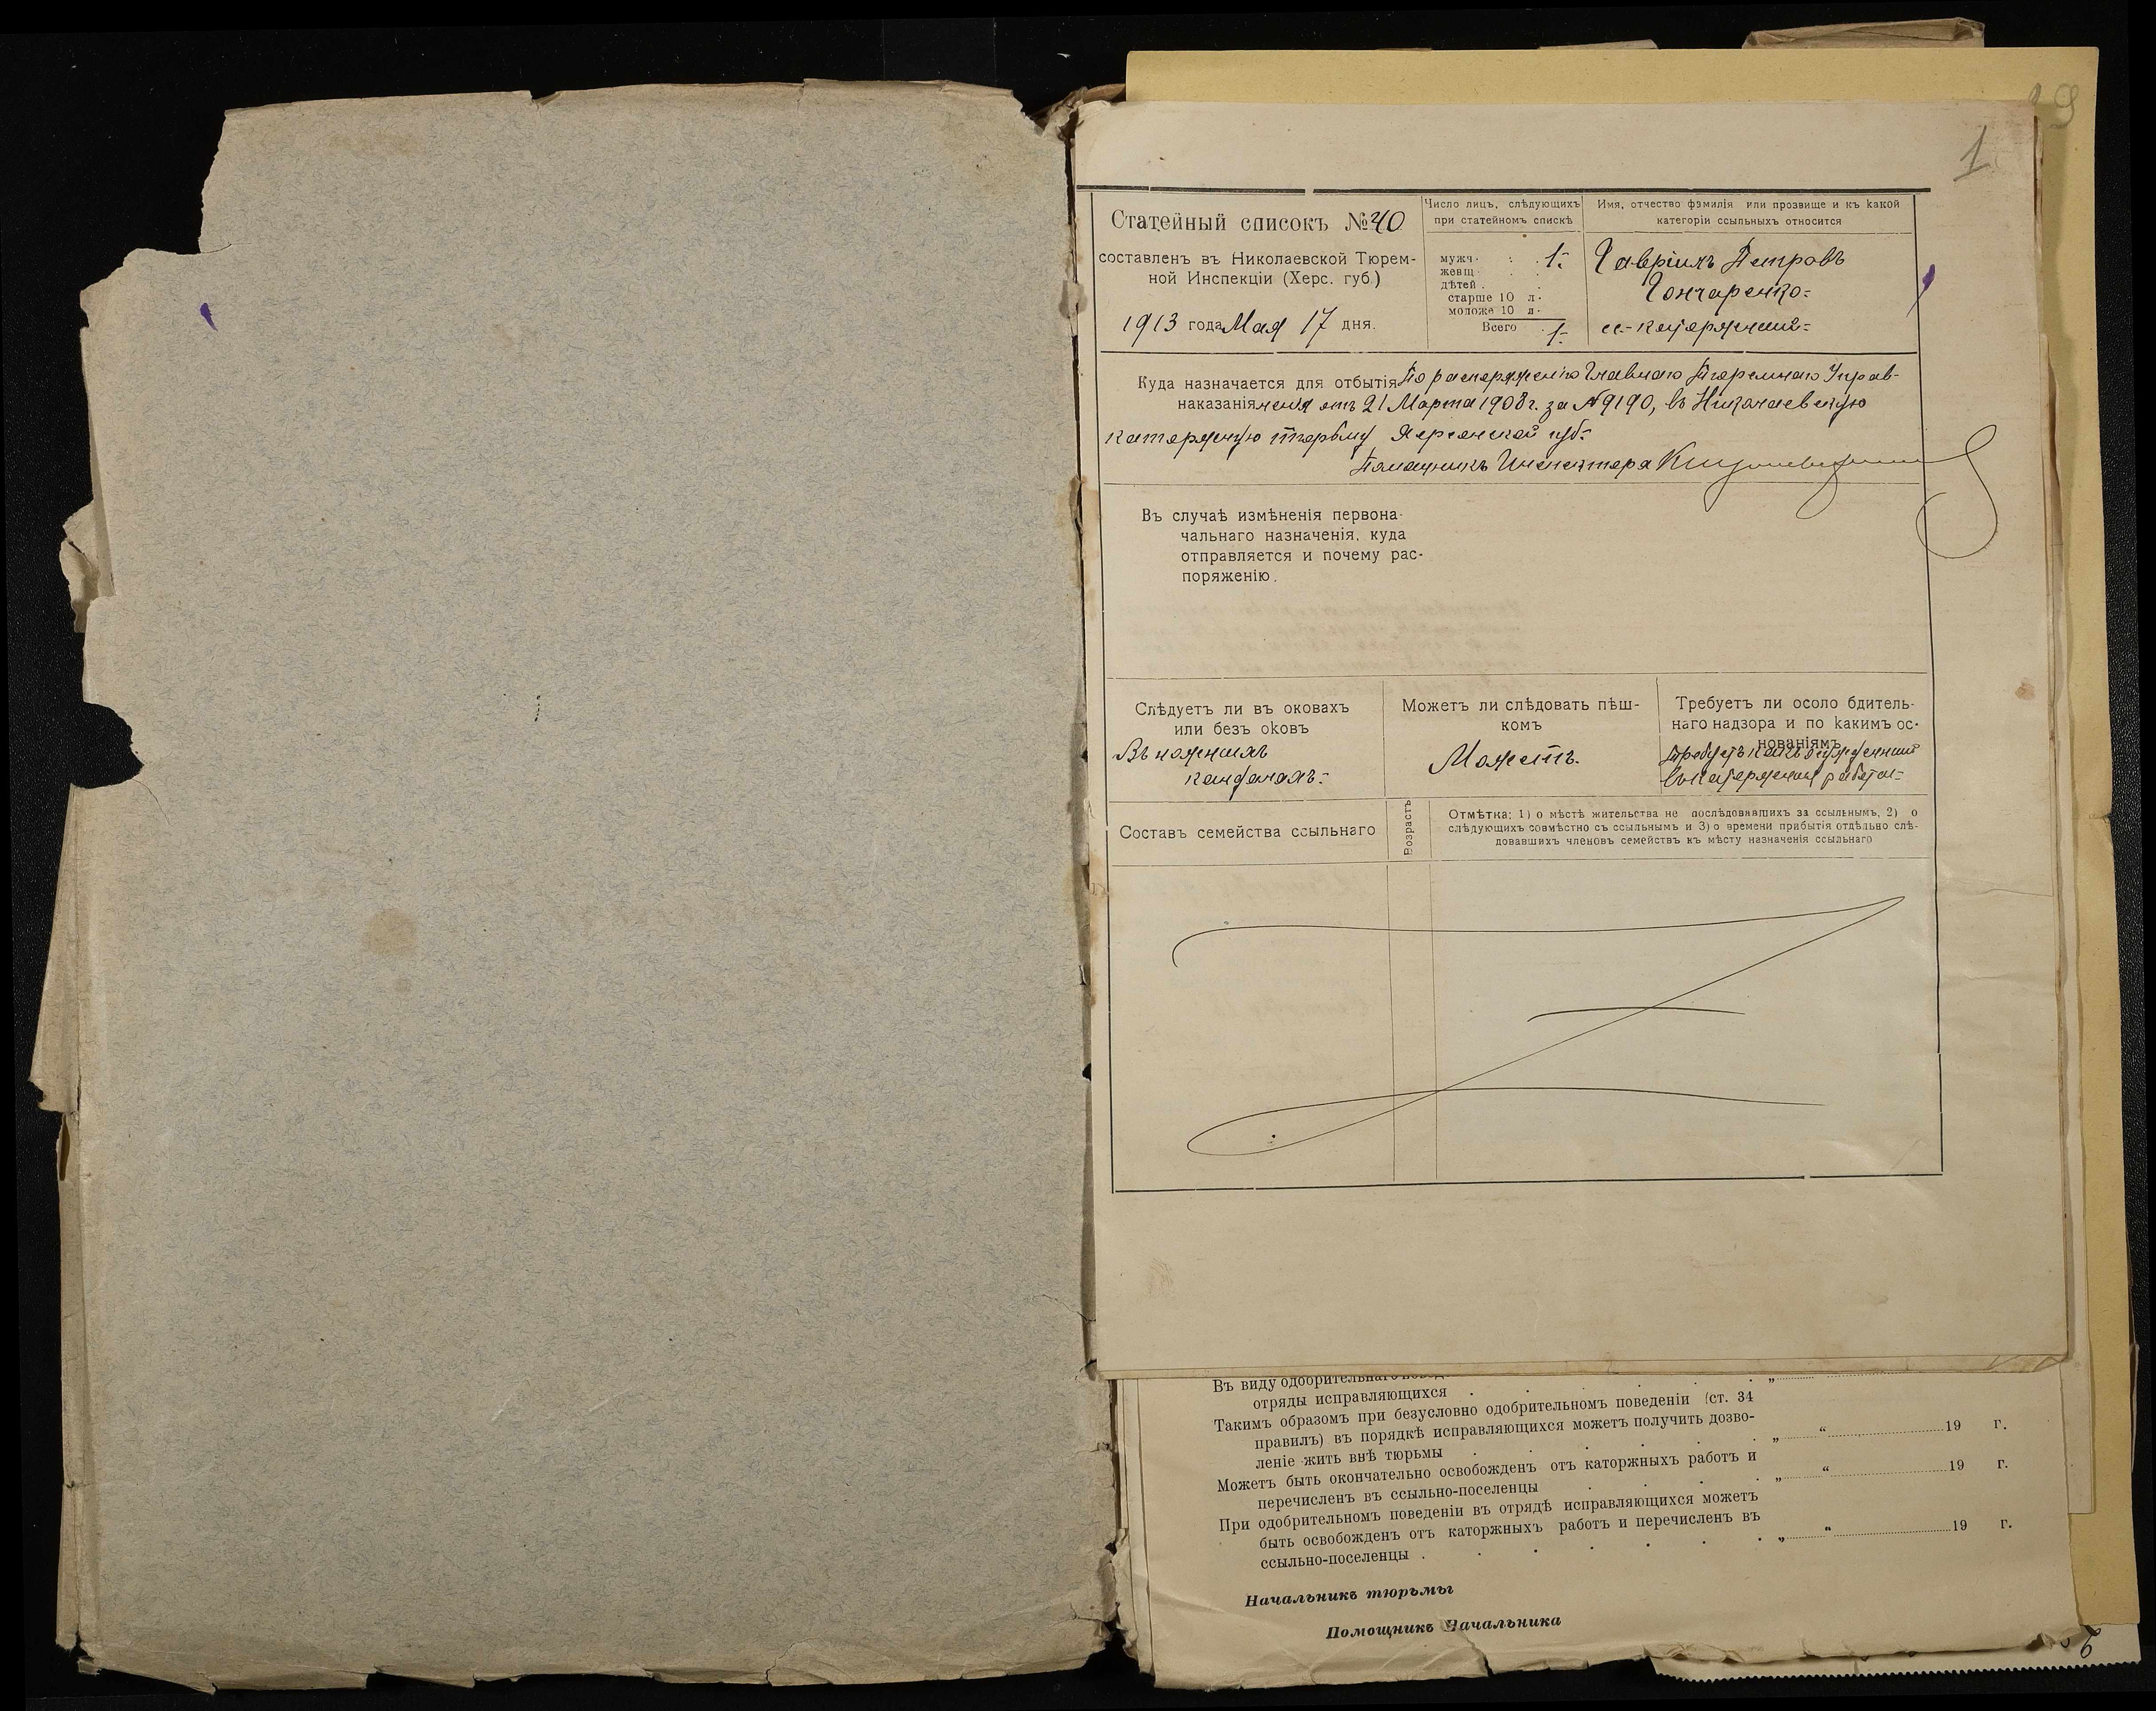 1
19
Статейный списокъ № 40
составленъ въ Николаевской Тюрем-
ной Инспекціи (Херс. губ.)
1913 года Мая 17 дня.
Число лицъ, слѣдующихъ
при статейномъ спискѣ
мужч. . . 1.-
женщ. . .
дѣтей . .
старше 10 л.
моложе 10 л.
Всего . 1.-
Имя, отчество фамилія или прозвище и къ какой
категоріи ссыльныхъ относится
Гавріилъ Петровъ
Гончаренко-
сс.-каторжный-
Куда назначается для отбытія По распоряженію Главнаго Тюремнаго Управ-
наказанія ленія отъ 21 Марта 1908 г. за № 9190, въ Николаевскую
каторжную тюрьму Херсонской губ.-
Помощникъ Инспектора
Въ случаѣ измѣненія первона-
чальнаго назначенія, куда
отправляется и почему рас-
поряженію.
Слѣдуетъ ли въ оковахъ
или безъ оковъ
Въ ножныхъ
кандалахъ.-
Можетъ ли слѣдовать пѣш-
комъ
Можетъ.
Требуетъ ли осоло бдитель-
наго надзора и по какимъ ос-
нованіямъ
Требуетъ какъ осужденный
въ каторжныя работы-
Составъ семейства ссыльнаго
Возрастъ
Отмѣтка: 1) о мѣстѣ жительства не послѣдовавшихъ за ссыльнымъ, 2) о
слѣдующихъ совмѣстно съ ссыльнымъ и 3) о времени прибытія отдѣльно слѣ-
довавшихъ членовъ семействъ къ мѣсту назначенія ссыльнаго
Въ виду одобрительнаго
отряды исправляющихся . . . . . „
Такимъ образомъ при безусловно одобрительномъ поведеніи (ст. 34
правилъ) въ порядкѣ исправляющихся можетъ получить дозво-
леніе жить внѣ тюрьмы . . . . . „ “ 19 г.
Можетъ быть окончательно освобожденъ отъ каторжныхъ работъ и
перечисленъ въ ссыльно-поселенцы . . . . „ “ 19 г.
При одобрительномъ поведеніи въ отрядѣ исправляющихся можетъ
быть освобожденъ отъ каторжныхъ работъ и перечисленъ въ
ссыльно-поселенцы . . . . . . . „ “ 19 г.
Начальникъ тюрьмы
Помощникъ Начальника